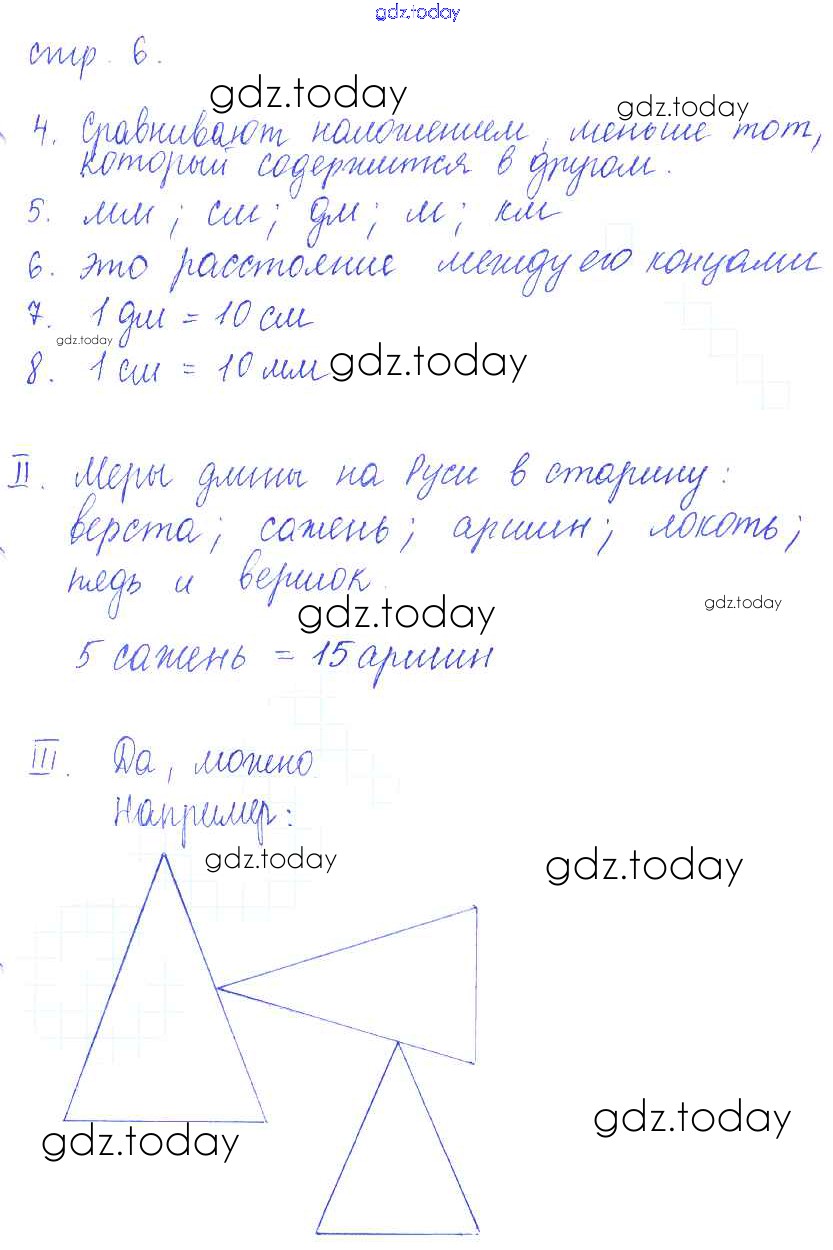 gdz.today
стр. 6.
gdz.today
gdz.today
4. Сравнивают наложением, меньше тот,
который содержится в другом.
5. мм; см; дм; м; км
6. это расстояние между его концами
7. 1 дм = 10 см
gdz.today
8. 1 см = 10 мм
gdz.today
II. Меры длины на Руси в старину:
верста; сажень; аршин; локоть;
пядь и вершок.
gdz.today
gdz.today
5 сажень = 15 аршин
III. Да, можно
Например:
gdz.today
gdz.today
gdz.today
gdz.today